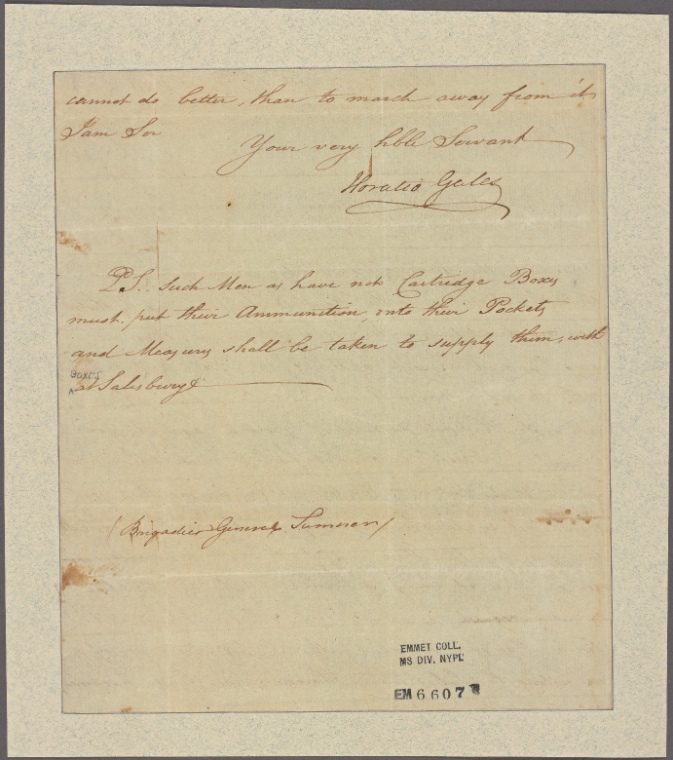 cannot do better, than to march away from it
I am Sir
Your very hble Servant
Horatio Gates
P.S. such Men as have not Cartridge Boxes
must put their Ammunition into their Pockets
and Measures shall be taken to supply them, with
Boxes
at Salisbury
(Brigadier General Sumner)
EMMET COLL.
MS DIV. NYPL
EM 6607